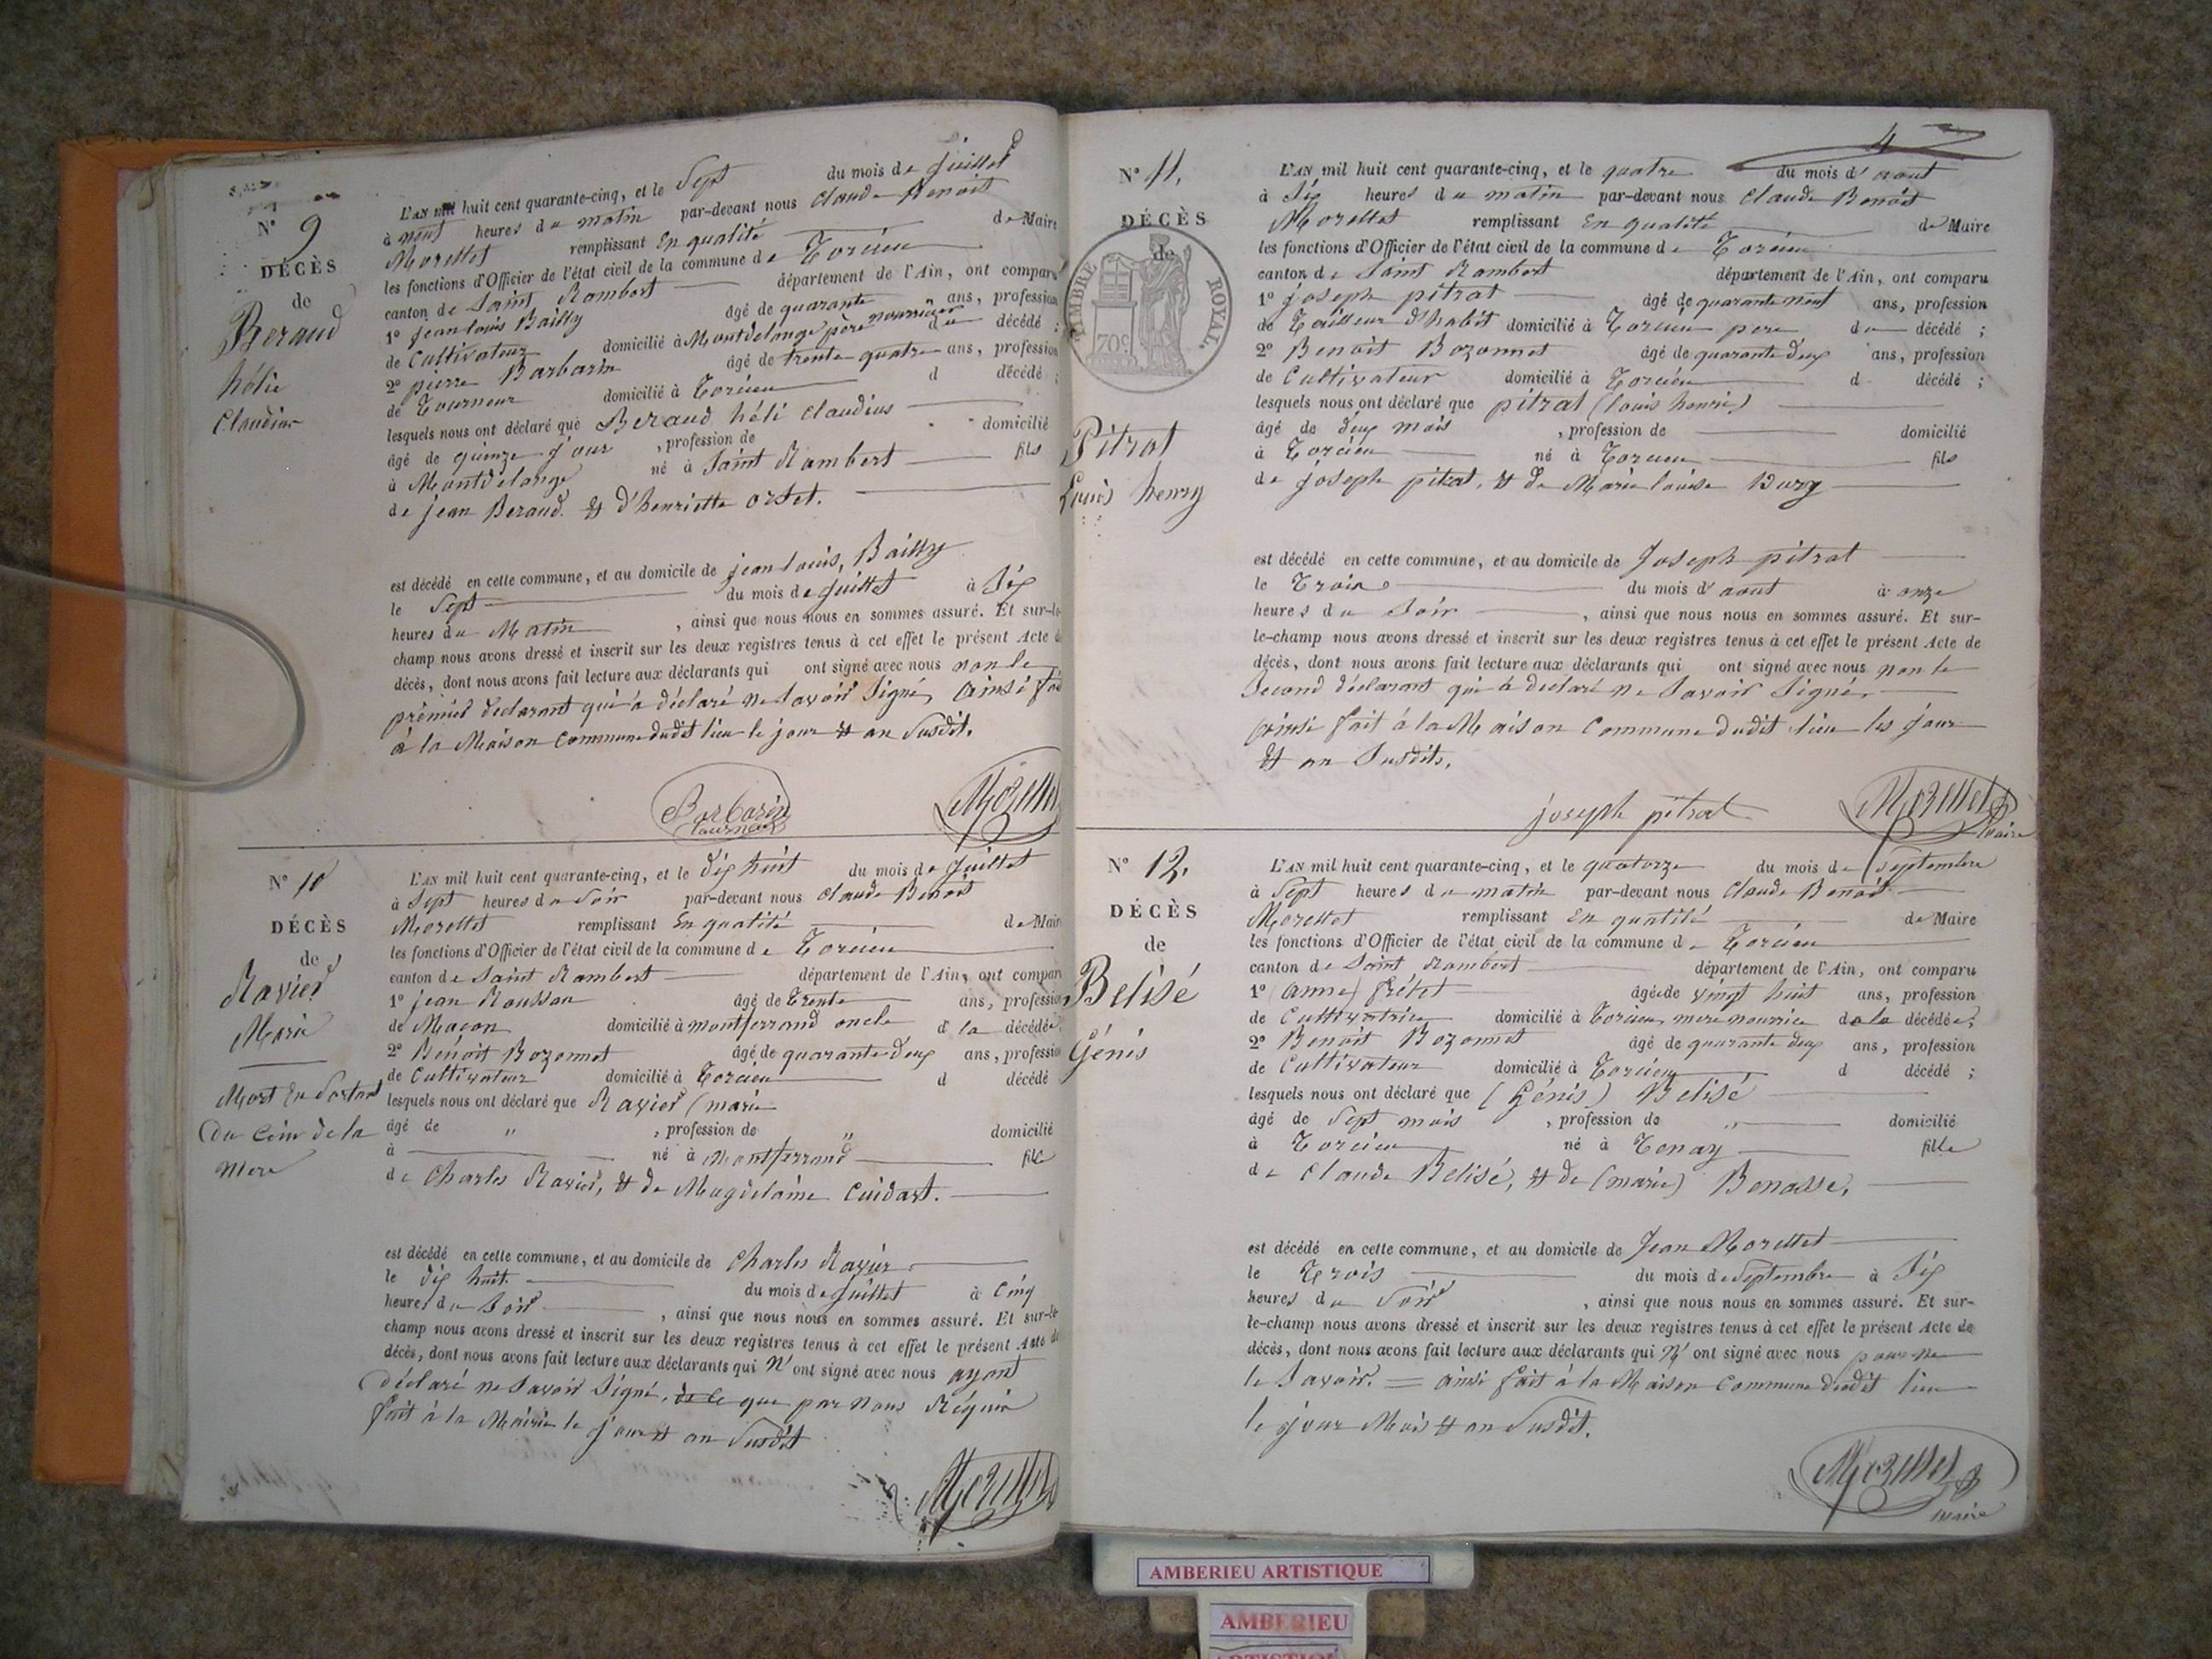 N° 9
DÉCÈS
de
Beraud
hélie
Claudius
L'AN mil huit cent quarante-cinq, et le Sept du mois de Juillet
à neuf heures du matin par-devant nous Claude Benoit
Morellet remplissant En qualité de Maire
les fonctions d'Officier de l'état civil de la commune de Torcieu
canton de Saint Rambert département de l'Ain, ont comparu
1° jean louis Bailly âgé de quarante ans, profession
de Cultivateur domicilié à Montdelange père nourricier du décédé ;
2° pierre Barbarin âgé de trente quatre ans, profession
de Tourneur domicilié à Torcieu d décédé ;
lesquels nous ont déclaré que Beraud héli Claudius
âgé de quinze jour , profession de domicilié
à Montdelange né à Saint Rambert fils
de jean Beraud. & d'henriette orset.
est décédé en cette commune, et au domicile de jean louis, Bailly
le Sept du mois de Juillet à Six
heures du Matin , ainsi que nous nous en sommes assuré. Et sur-le-
champ nous avons dressé et inscrit sur les deux registres tenus à cet effet le présent Acte de
décès, dont nous avons fait lecture aux déclarants qui ont signé avec nous non le
premier declarant qui a déclaré ne Savoir Signé, ainsi fait
à la Maison Commune dudit lieu le jour & an Susdit.
Barbarin
tourneur
Morellet
N° 10
DÉCÈS
de
Ravier
Marie
Mort En Sortant
Du Cein de la
mere
L'AN mil huit cent quarante-cinq, et le dix huit du mois de Juillet
à Sept heures du Soir par-devant nous Claude Benoit
Morellet remplissant En qualité de Maire
les fonctions d'Officier de l'état civil de la commune de Torcieu
canton de Saint Rambert département de l'Ain, ont comparu
1° jean Roussan âgé de Trente ans, profession
de Maçon domicilié à montferrand oncle d la décédée
2° Benoit Bozonnet âgé de quarante deux ans, profession
de Cultivateur domicilié à Torcieu d décédé
lesquels nous ont déclaré que Ravier (marie
âgé de " , profession de " domicilié
à né à Montferrand fille
de Charles Ravier, & de Magdelaine Cuidart.
est décédé en cette commune, et au domicile de Charles Ravier
le dix huit du mois de Juillet à Cinq
heures du Soir , ainsi que nous nous en sommes assuré. Et sur-le-
champ nous avons dressé et inscrit sur les deux registres tenus à cet effet le présent Acte de
décès, dont nous avons fait lecture aux déclarants qui N' ont signé avec nous ayant
déclaré ne Savoir Signé, de ce que par nous Réquis
fait à la Mairie le jour & an Susdit
Morellet
4
N° 11.
DÉCÈS
de
TIMBRE ROYAL.
70c
Pitrat
Louis henry
L'AN mil huit cent quarante-cinq, et le quatre du mois d'aout
à Six heures du matin par-devant nous Claude Benoit
Morellet remplissant En qualité de Maire
les fonctions d'Officier de l'état civil de la commune de Torcieu
canton de Saint Rambert département de l'Ain, ont comparu
1° joseph pitrat âgé de quarante neuf ans, profession
de Tailleur d'habit domicilié à Torcieu pere du décédé ;
2° Benoit Bozonnet âgé de quarante deux ans, profession
de Cultivateur domicilié à Torcieu d décédé ;
lesquels nous ont déclaré que pitrat (louis henri)
âgé de deux mois , profession de domicilié
à Torcieu né à Torcieu fils
de joseph pitrat, & de Marie louise Burg
est décédé en cette commune, et au domicile de Joseph pitrat
le Trois du mois d'aout à onze
heures du Soir , ainsi que nous nous en sommes assuré. Et sur-
le-champ nous avons dressé et inscrit sur les deux registres tenus à cet effet le présent Acte de
décès, dont nous avons fait lecture aux déclarants qui ont signé avec nous non le
Second déclarant qui à declaré ne Savoir Signé,
ainsi fait à la Maison Commune dudit lieu les jour
& an Susdits.
joseph pitrat
Morellet
Maire
N° 12.
DÉCÈS
de
Belisé
Génis
L'AN mil huit cent quarante-cinq, et le quatorze du mois de Septembre
à Sept heures du matin par-devant nous Claude Benoit
Morellet remplissant En qualité de Maire
les fonctions d'Officier de l'état civil de la commune de Torcieu
canton de Saint Rambert département de l'Ain, ont comparu
1° (anne) frétet âgée de vingt huit ans, profession
de Cultivatrice domicilié à Torcieu mere nourrice de la décédée ;
2° Benoit Bozonnet âgé de quarante deux ans, profession
de Cultivateur domicilié à Torcieu d décédé ;
lesquels nous ont déclaré que (Génis) Belisé
âgé de Sept mois , profession de " domicilié
à Torcieu né à Tenay fille
de Claude Belisé, & de (marie) Benasse,
est décédé en cette commune, et au domicile de Jean Morellet
le Trois du mois de Septembre à Six
heures du Soir , ainsi que nous nous en sommes assuré. Et sur-
le-champ nous avons dressé et inscrit sur les deux registres tenus à cet effet le présent Acte de
décès, dont nous avons fait lecture aux déclarants qui N' ont signé avec nous pour ne
le Savoir. = ainsi fait à la Maison Commune dudit lieu
le jour Mois & an Susdit.
Morellet
maire
AMBERIEU ARTISTIQUE
AMBERIEU
ARTISTIQUE